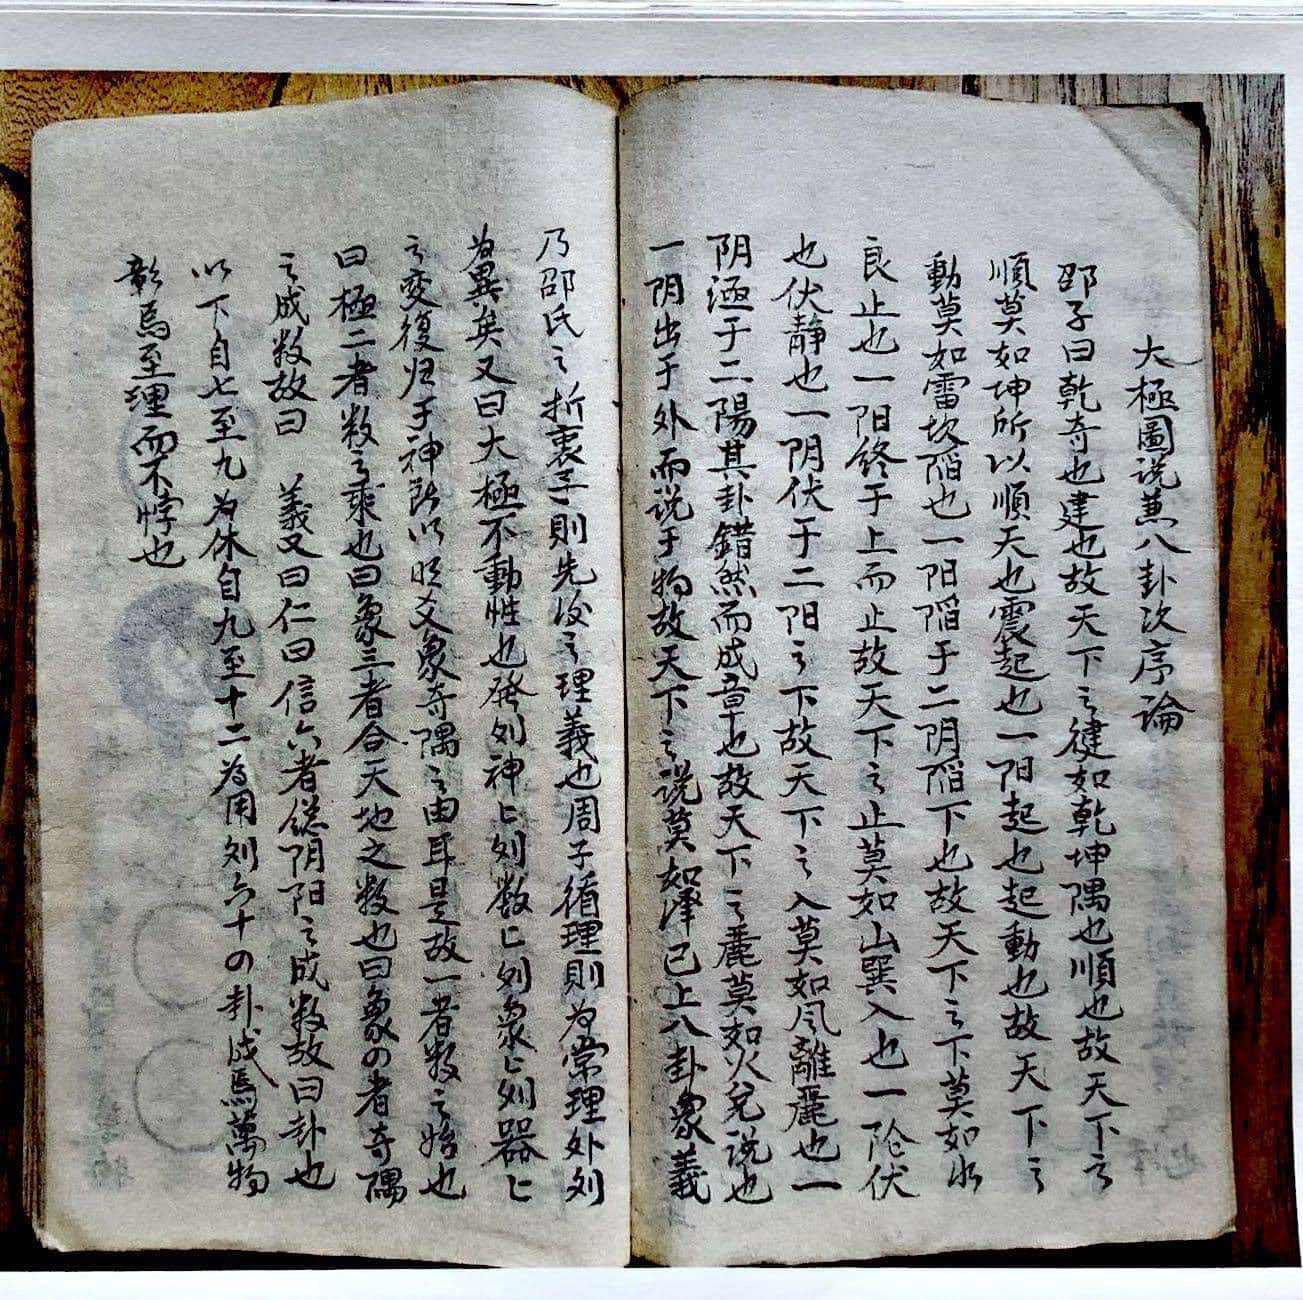 大極圖说兼八卦次序论
邵子曰乾奇也建也故天下之健如乾坤隅也順也故天下之
順莫如坤所以順天也震起也一阳起也起動也故天下之
動莫如雷坎陷也一阳陷于二阴陷下也故天下之下莫如水
艮止也一阳终于上而止故天下之止莫如山巽入也一阴伏
也伏静也一阴伏于二阳之下故天下之入莫如风離麗也一
阴𠅤于二陽其卦錯然而成章也故天下之麗莫如火兑说也
一阴出于外而说于物故天下之说莫如泽已上八卦象義
乃邵氏之折衷子則先後之理義也周子循理則为常理外列
为異矣又曰大極不動性也發列神匕列数匕列象匕列器匕
之变復归于神所以明爻象奇隅之由耳是故一者数之始也
曰極二者数之乘也曰象三者合天地之数也曰象の者奇隅
之成数故曰 義又曰仁曰信六者总阴阳之成数故曰卦也
以下自七至九为休自九至十二為用列六十の卦成焉萬物
彰焉至理而不悖也